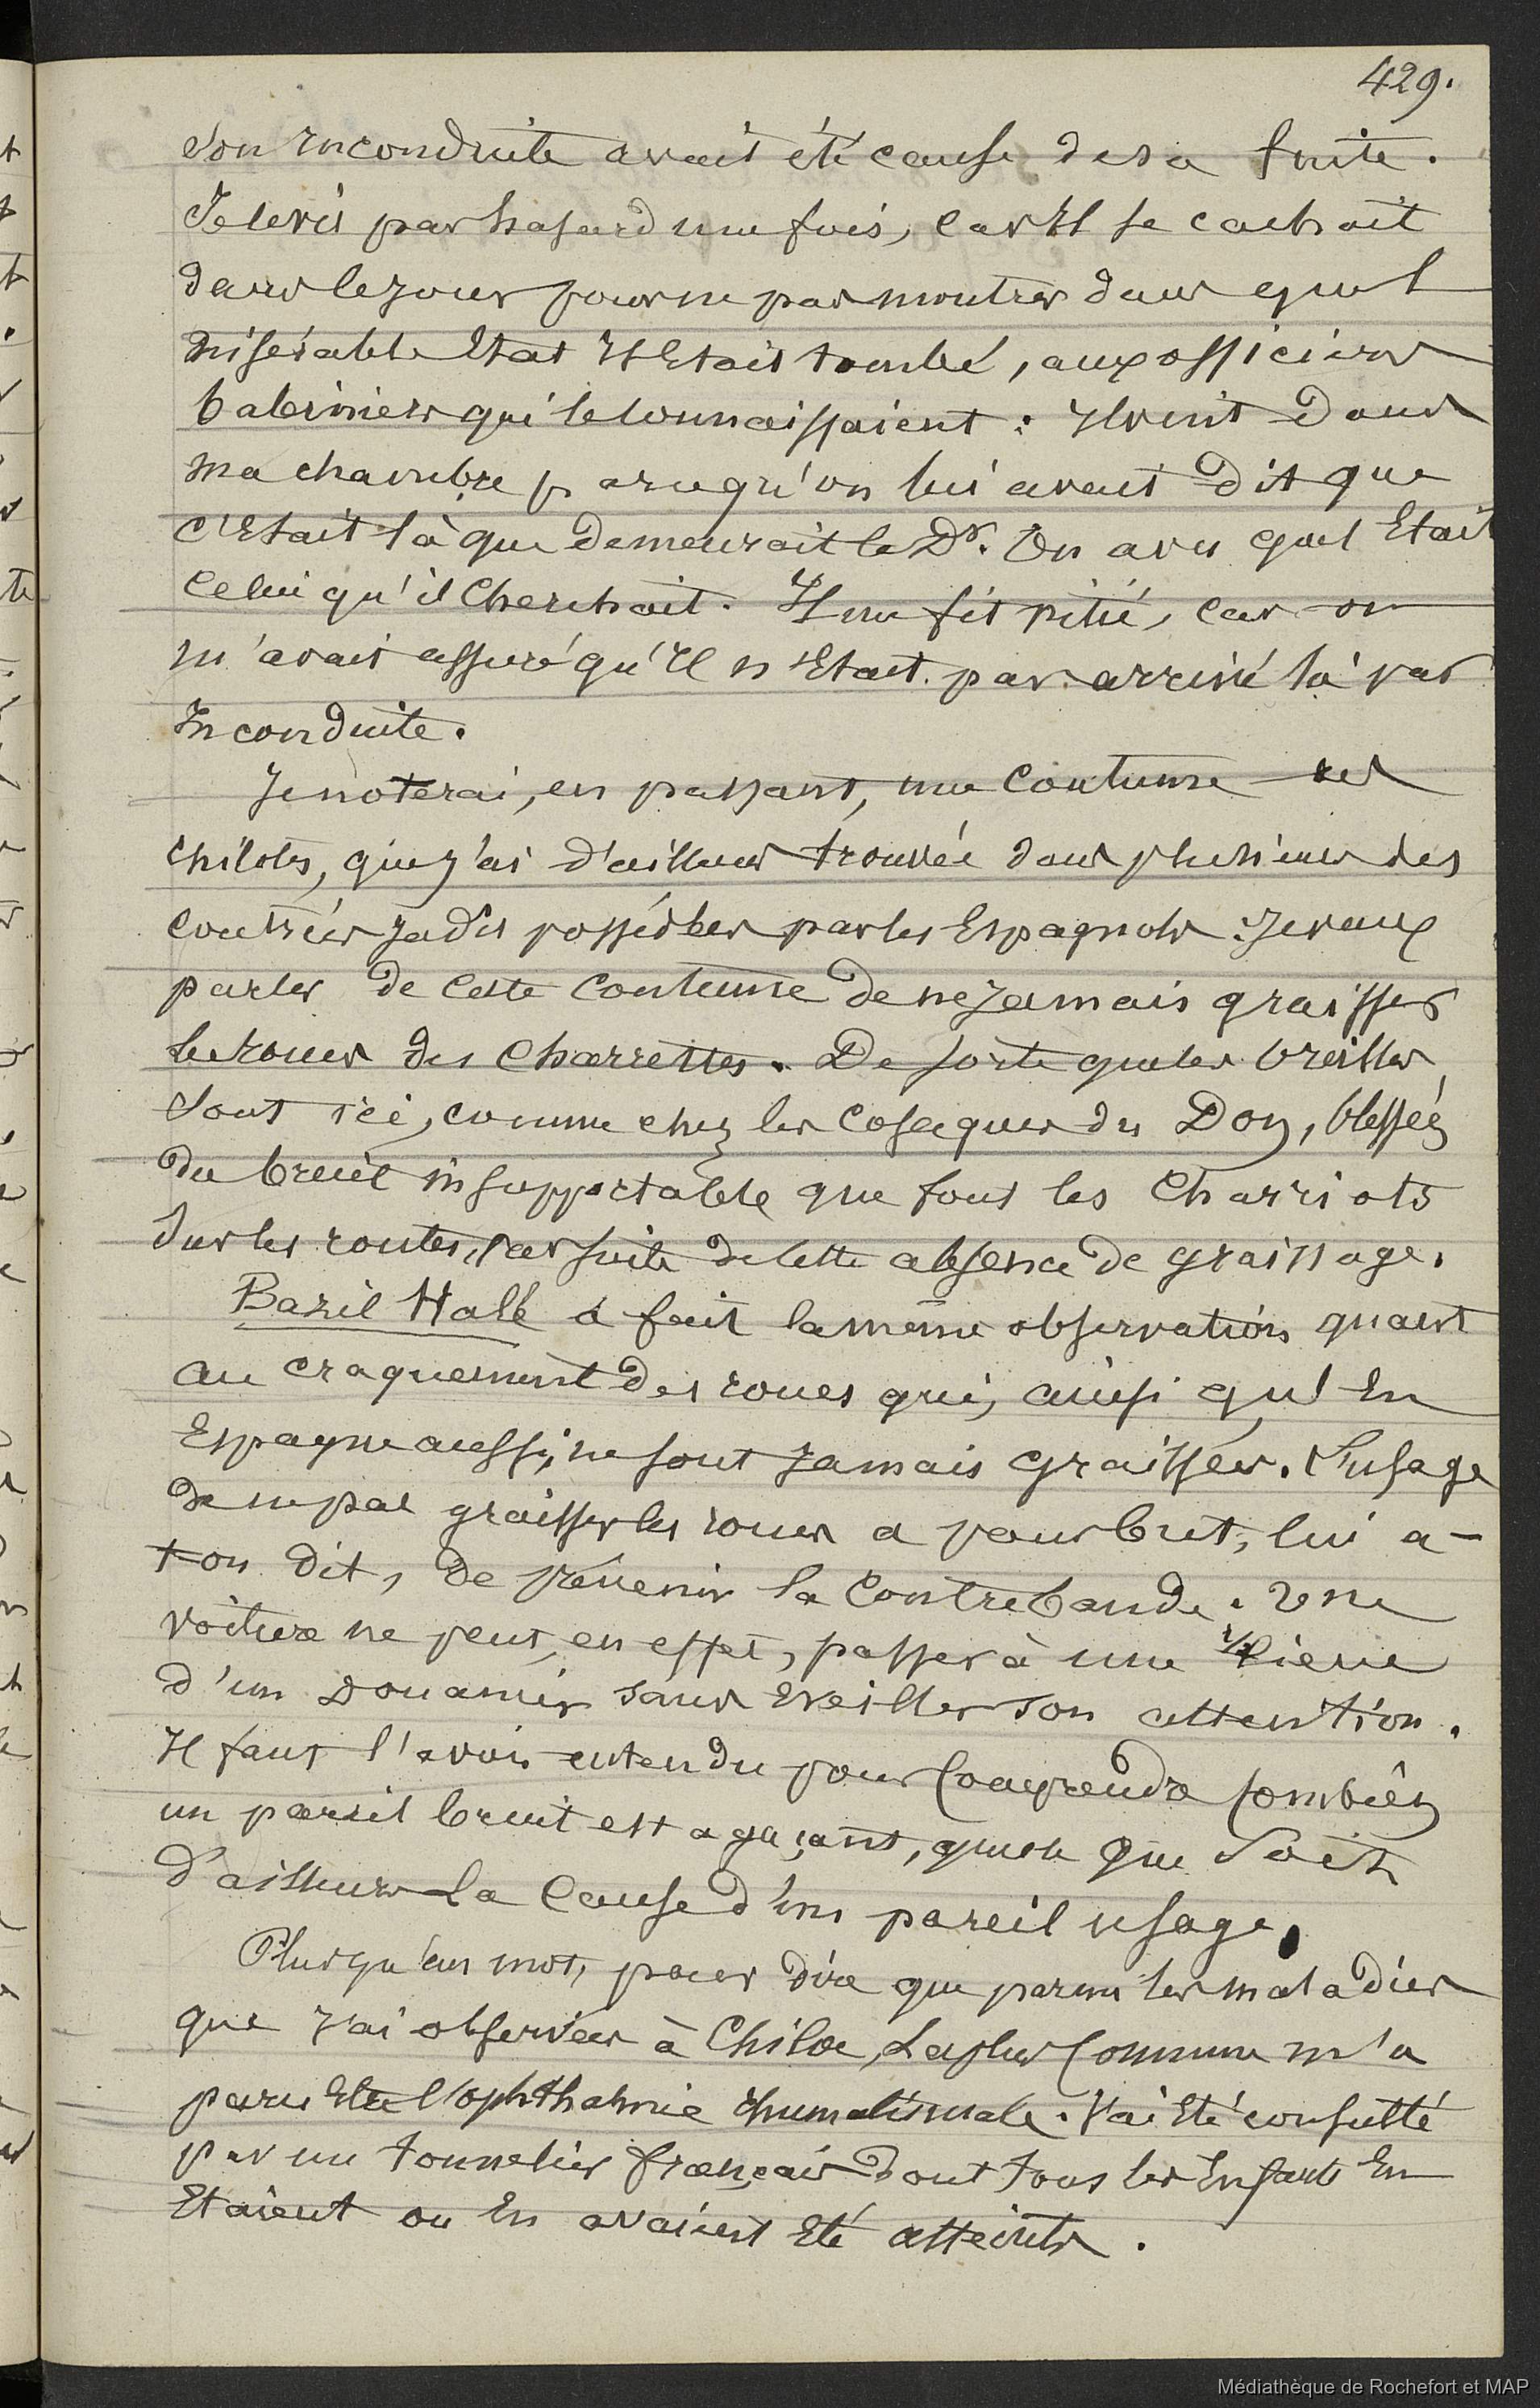 429.
Son Inconduite avait été cause de sa fuite.
Je le vis par hasard une fois, car Il se cachait
dans le jour pour ne pas montrer dans quel
misérable Etat Il Etait tombé, aux officiers
baleiniers qui le connaissaient : Il vint dans
ma chambre parcequ'on lui avait dit que
c'Etait là que demeurait le Dr. On a vu quel Etait
celui qu'il Cherchait. Il me fit pitié, car on
m'avait assuré qu'Il n'Etait pas arrivé là par
Inconduite.
Je noterai, en passant, une Coutume des
Chilotes, que j'ai d'ailleurs trouvée dans plusieurs des
contrées jadis possédées par les Espagnols : Je veux
parler de cette Coutume de ne jamais graisser
les roues des Charrettes. De sorte que les Oreilles
sont ici, comme chez les Cosaques du Don, blessées
du bruit insupportable que font les Charriots
sur les routes, par suite de cette absence de graissage.
Bazil Hall a fait la même observation quant
au craquement des roues qui, ainsi qu'En
Espagne aussi, ne sont jamais graissées. L'usage
de ne pas graisser les roues a pour but, lui a-
t-on dit, de prévenir la Contrebande. Une
voiture ne peut, en effet, passer à une 1/2 lieue
d'un Douanier sans Eveiller son attention.
Il faut l'avoir entendu pour Comprendre combien
un pareil bruit est agaçant, quelle que Soit
d'ailleurs la Cause d'un pareil usage.
Plus qu'un mot, pour dire que parmi les maladies
que j'ai observées à Chiloe, La plus Commune m'a
paru Etre l'ophthalmie rhumatismale. J'ai Eté consulté
par un tonnelier français dont tous les Enfants En
Etaient ou En avaient Eté atteints.
Médiathèque de Rochefort et MAP